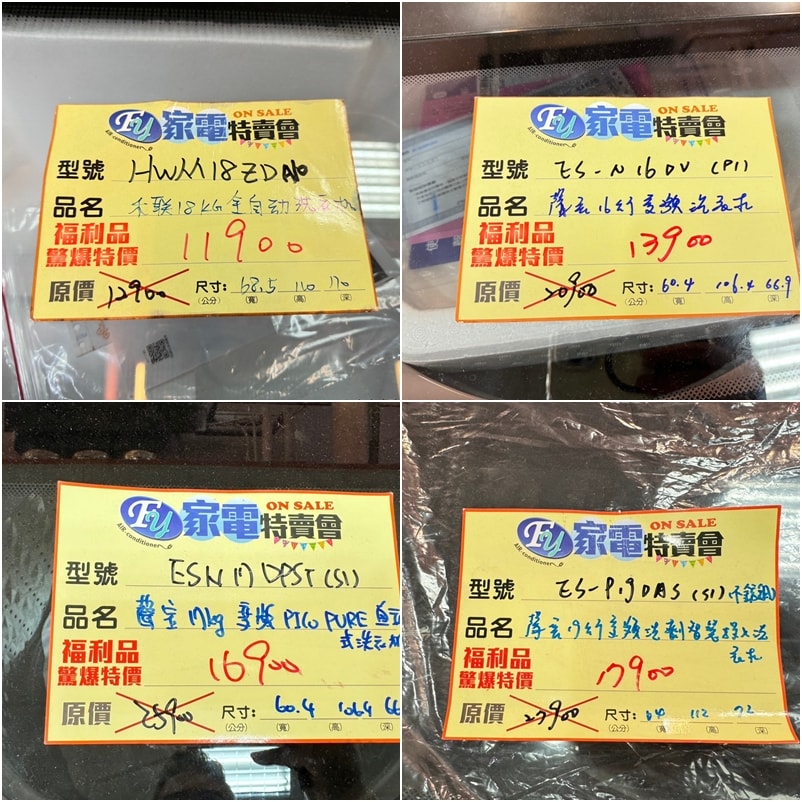 FY 家電特賣會 ON SALE
AIR-conditioner
型號 HWM18ZDA10
品名 禾聯18KG全自动洗衣机
福利品
驚爆特價 11900
原價 12900 尺寸: 68.5 110 70
(公分) (寬) (高) (深)
FY 家電特賣會 ON SALE
AIR-conditioner
型號 ES-N16DV (P1)
品名 聲宝16斤变頻洗衣机
福利品
驚爆特價 13900
原價 20900 尺寸: 60.4 106.4 66.9
(公分) (寬) (高) (深)
FY 家電特賣會 ON SALE
AIR-conditioner
型號 ESN17DPST (S1)
品名 聲宝17kg 变頻 PICO PURE 直立
式洗衣机
福利品
驚爆特價 16900
原價 25900 尺寸: 60.4 106.4 66
(公分) (寬) (高)
FY 家電特賣會 ON SALE
AIR-conditioner
型號 ES-P19DAS (S1)
品名 聲宝19斤变頻洗劑智慧投入洗
衣机
福利品
驚爆特價 17900
原價 27900 尺寸: 64 112 72
(公分) (寬) (高) (深)